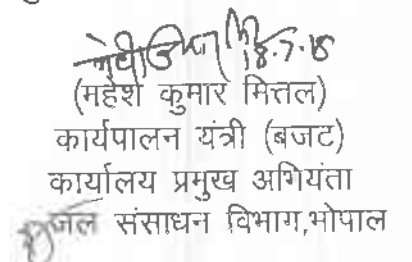 18.7.15
(महेश कुमार मित्तल)
कार्यपालन यंत्री (बजट)
कार्यालय प्रमुख अभियंता
जल संसाधन विभाग,भोपाल